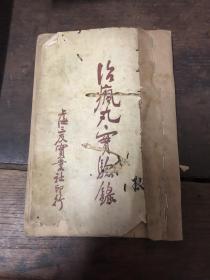 治瘋丸實驗錄
上海三友實業社印行